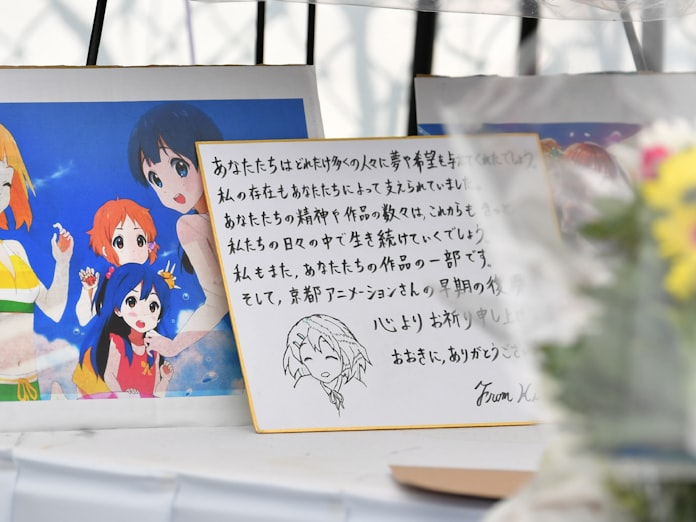 あなたたちはどれだけ多くの人々に夢や希望を与えてくれたでしょう。
私の存在もあなたたちによって支えられていました。
あなたたちの精神や作品の数々は、これからもきっと
私たちの日々の中で生き続けていくでしょう。
私もまた、あなたたちの作品の一部です。
そして、京都アニメーションさんの早期の復
心よりお祈り申し上
おおきに、ありがとうござ
From